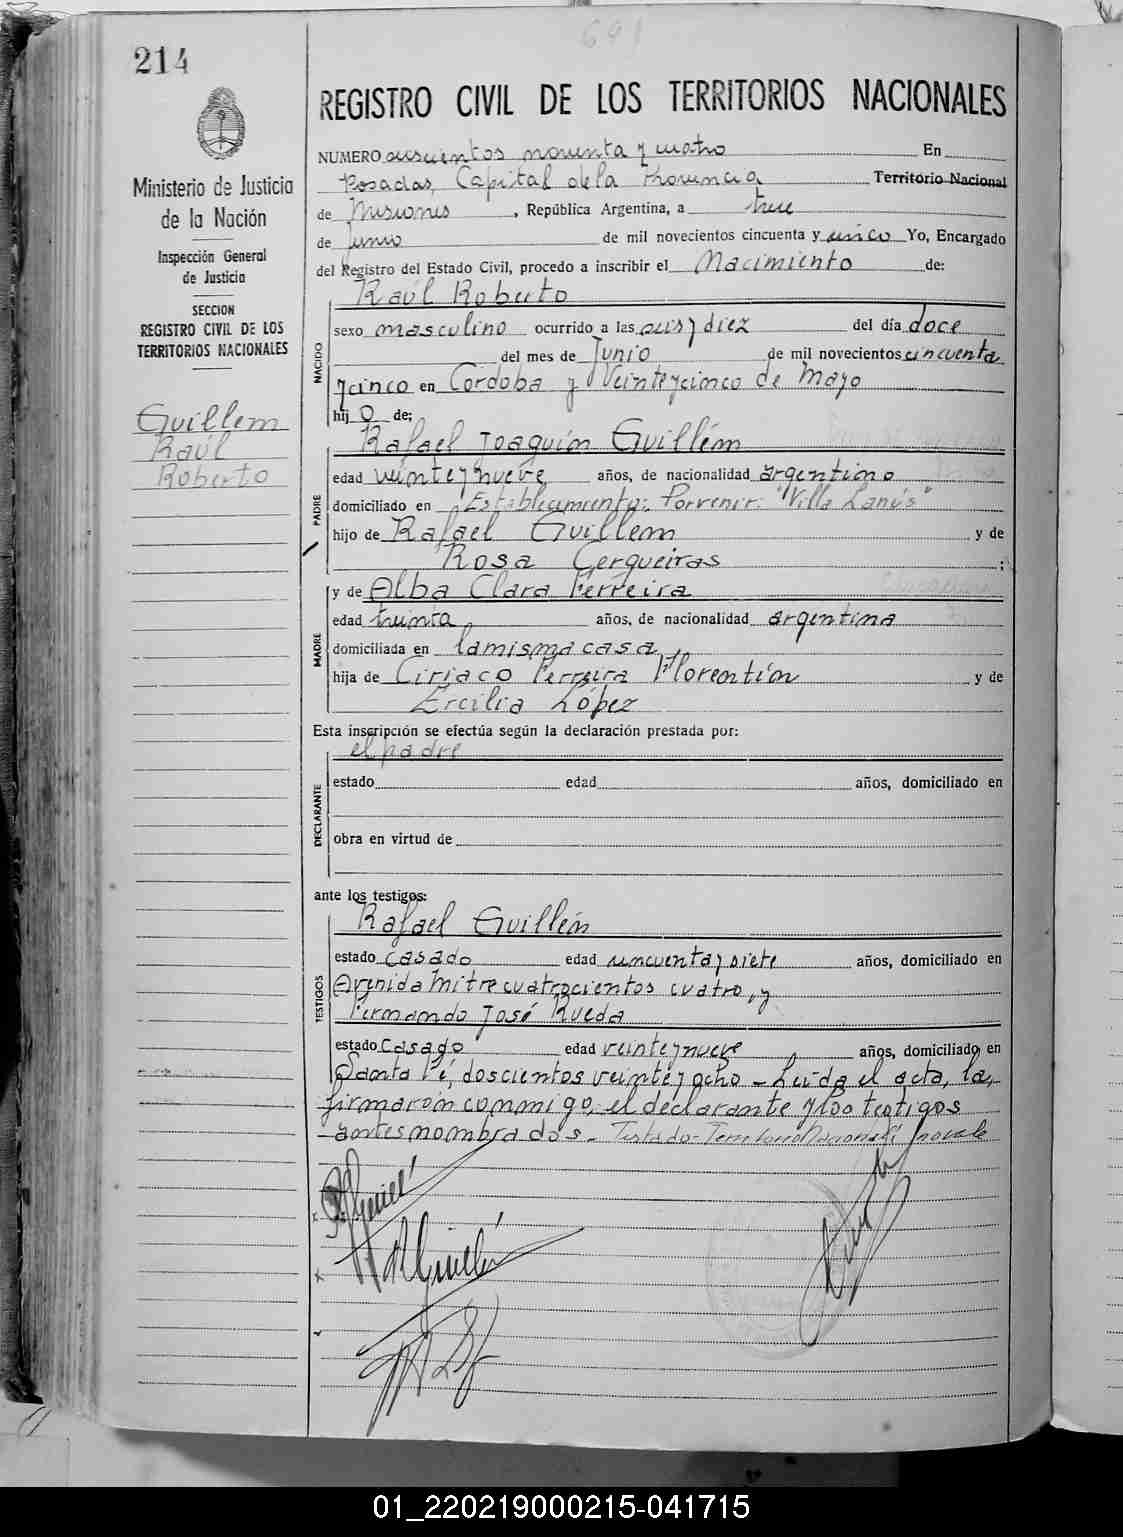 691
214
REGISTRO CIVIL DE LOS TERRITORIOS NACIONALES
Ministerio de Justicia
de la Nación
Inspección General
de Justicia
SECCION
REGISTRO CIVIL DE LOS
TERRITORIOS NACIONALES
Guillem
Raúl
Roberto
NUMERO seiscientos noventa y cuatro En
Posadas, Capital de la Provincia Territorio Nacional
de Misiones, República Argentina, a trece
de Junio de mil novecientos cincuenta y cinco Yo, Encargado
del Registro del Estado Civil, procedo a inscribir el Nacimiento de:
NACIDO
Raúl Roberto
sexo masculino ocurrido a las seis y diez del día doce
del mes de Junio de mil novecientos cincuenta
y cinco en Córdoba y Veinteycinco de Mayo
hijo de:
PADRE
Rafael Joaquím Guillém
edad veinteynueve años, de nacionalidad argentino
domiciliado en Establecimiento: Porvenir: "Villa Lanús"
hijo de Rafael Guillem y de
Rosa Cerqueiras ;
MADRE
y de Alba Clara Ferreira
edad treinta años, de nacionalidad argentina
domiciliada en la misma casa,
hija de Ciriaco Ferreira Florentín y de
Ercilia López
Esta inscripción se efectúa según la declaración prestada por:
DECLARANTE
el padre
estado edad años, domiciliado en
obra en virtud de
ante los testigos:
TESTIGOS
Rafael Guillén
estado casado edad cincuenta y siete años, domiciliado en
Avenida Mitre cuatrocientos cuatro, y
Fernando José Rueda
estado Casado edad veinteynueve años, domiciliado en
Santa Fé, doscientos veinte y ocho - Leída el acta, la
firmaron conmmigo, el declarante y los testigos
antes nombrados - Testado - Territorio Nacional: no vale
01_220219000215-041715